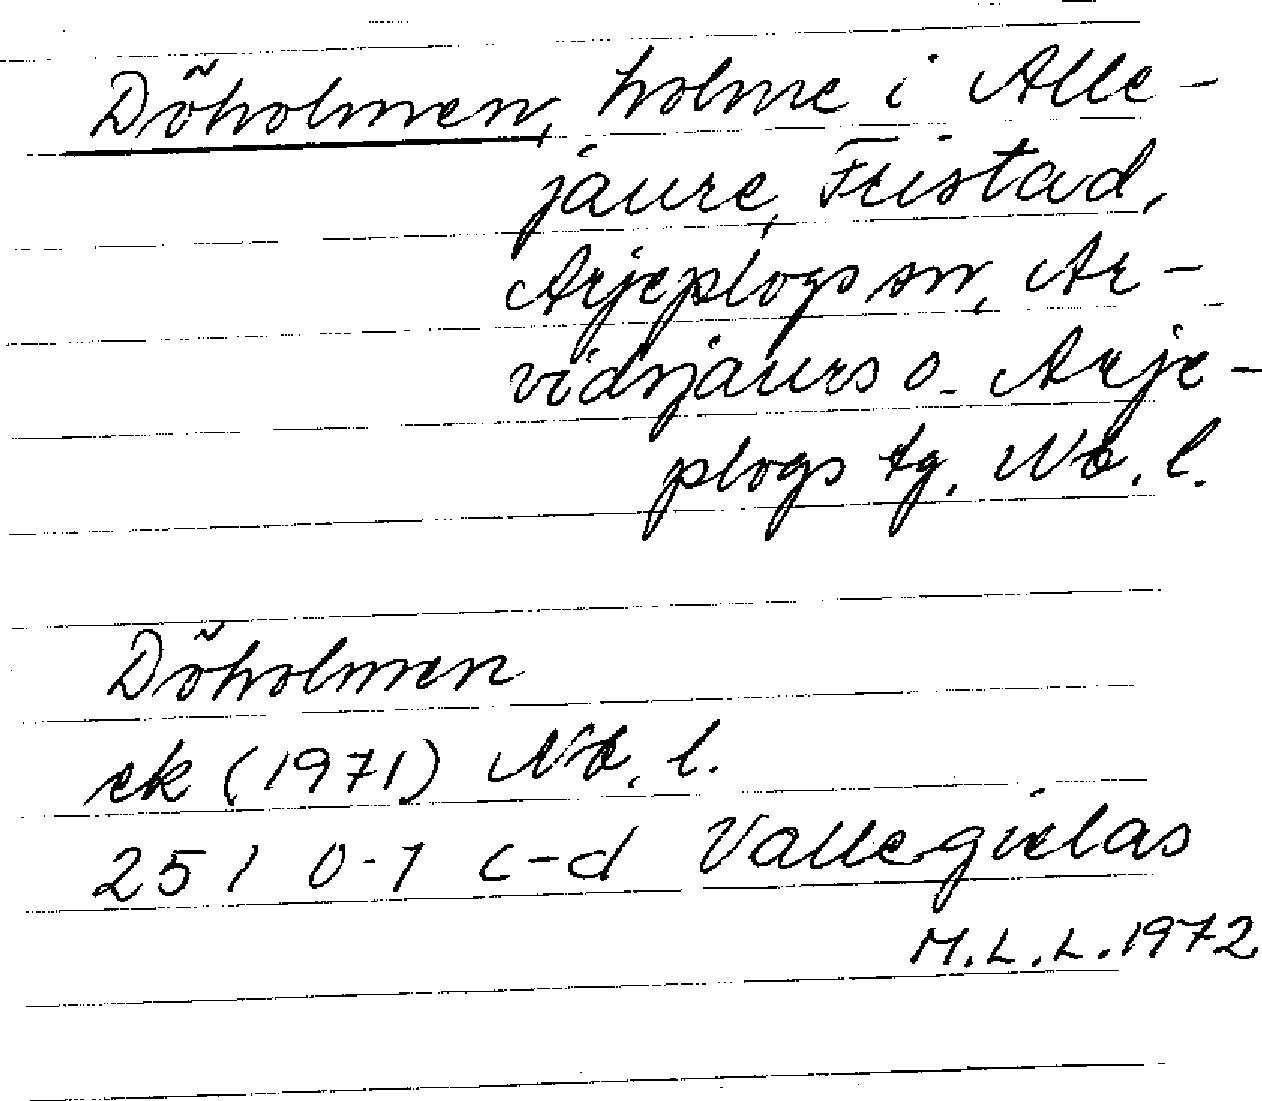 Döholmen, holme i Alle-
jaure, Fristad,
Arjeplogs sn, Ar-
vidsjaurs o. Arje-
plogs tg. Nb. l.
Döholmen
ek (1971) Nb. l.
251 0-1 c-d Vallegielas
M.L.L. 1972